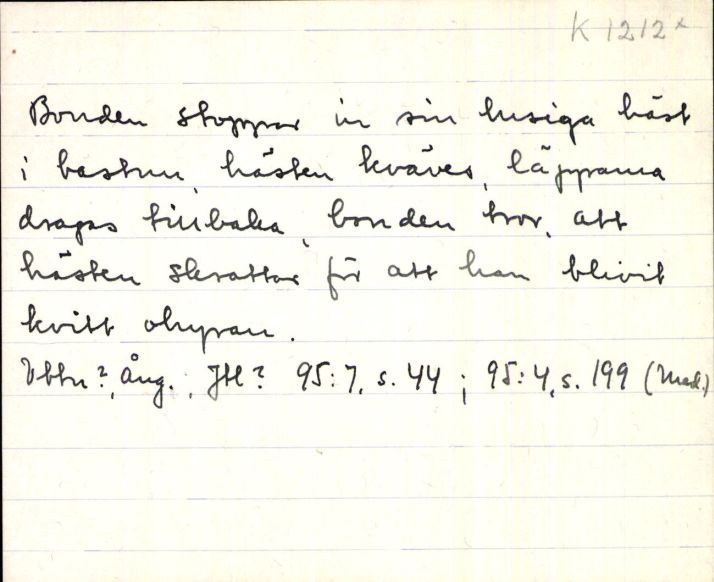 K 1212x
Bonden stoppar in sin lusiga häst
i bastun, hästen kväves, läpparna
dragas tillbaka, bonden tror, att
hästen skrattar för att han blivit
kvitt ohyran.
Vbtn?, Ång., Jtl? 95:7, s. 44 ; 95:4, s. 199 (Med.)